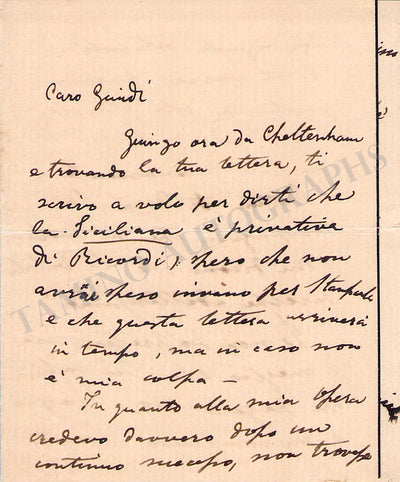 Caro Guidi
Giungo ora da Cheltenham
e trovando la tua lettera, ti
scrivo a volo per dirti che
la Siciliana è privativa
di Ricordi, spero che non
avrai speso invano per stamparla
e che questa lettera arriverà
in tempo, ma in caso non
è mia colpa —
In quanto alla mia opera
credevo davvero dopo un
continuo successo, non trovasse
TAMINO AUTOGRAPHS